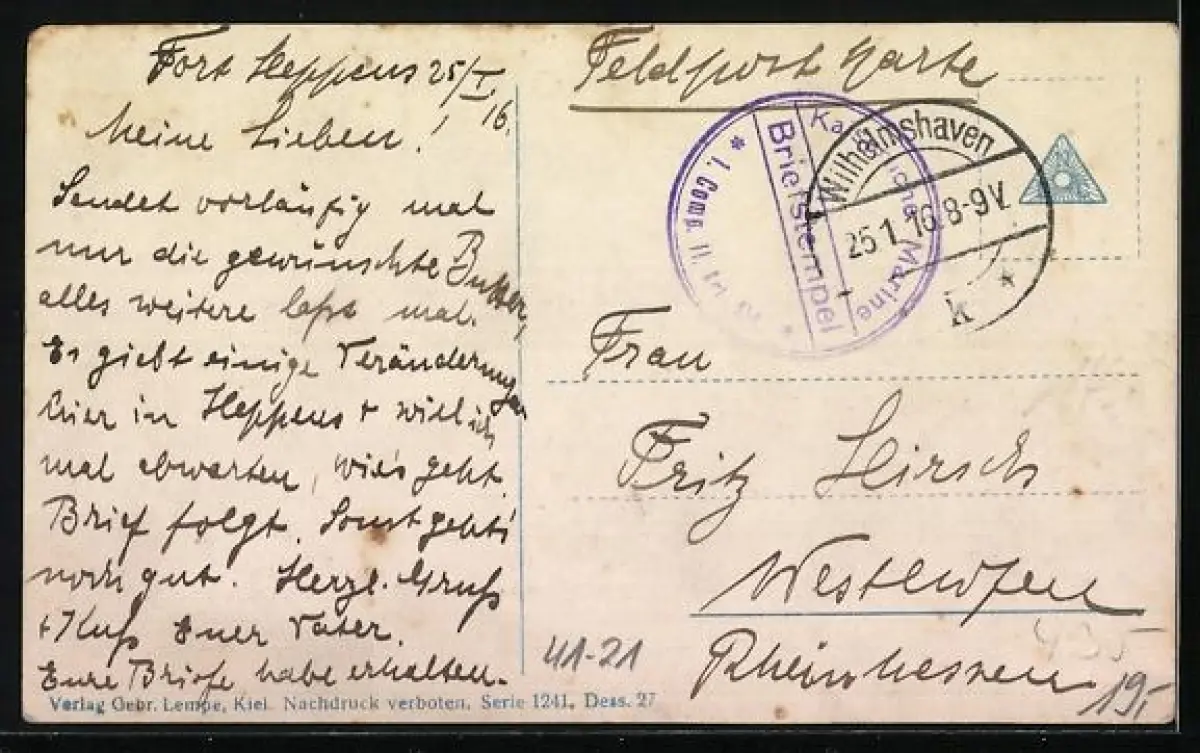 Fort Heppens 25/I.
16.
Meine Lieben!
Sendet vorläufig mal
nur die gewünschte Butter,
alles weitere laßt mal.
Es giebt einige Veränderungen
hier in Heppens + will ich
mal abwarten, wie's geht.
Brief folgt. Sonst geht's
noch gut. Herzl. Gruß
+ Kuß Euer Vater.
Eure Briefe habe erhalten.
Verlag Gebr. Lempe, Kiel. Nachdruck verboten. Serie 1241, Dess. 27
Feldpost Karte
Kaiserliche Marine
Briefstempel
* I. Comp. II.
Wilhelmshaven
25 1. 16. 8-9 V.
k *
Frau
Fritz Hirsch
Westhofen
Rheinhessen
41-21
435
19,-